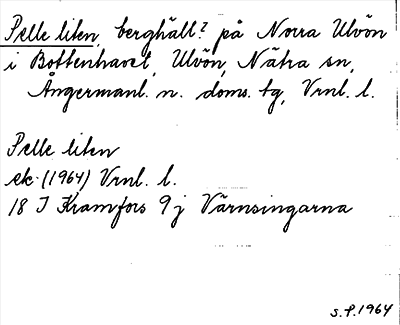 Pelle liten, berghäll? på Norra Ulvön
i Bottenhavet, Ulvön, Nätra sn,
Ångermanl. n. doms. tg, Vrnl. l.
Pelle liten
ek. (1964) Vrnl. l.
18 I Kramfors 9 j Värnsingarna
S.P. 1964